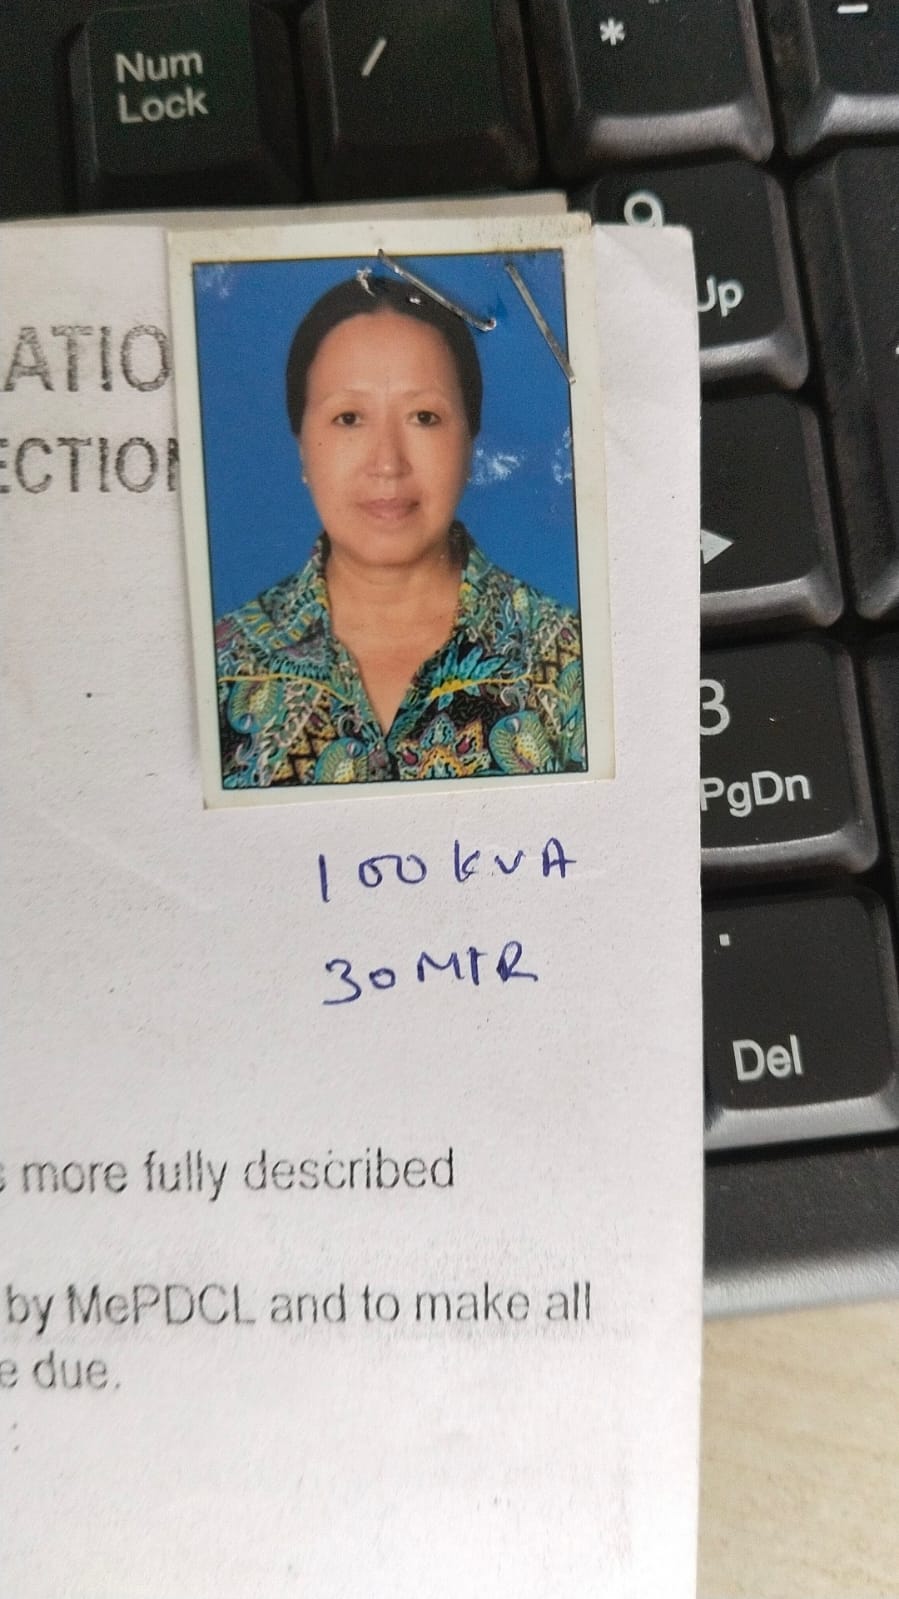 Num
Lock
/
*
9
Up
ATIO
ECTION
3
PgDn
100 KVA
30 MTR
.
Del
s more fully described
by MePDCL and to make all
e due.